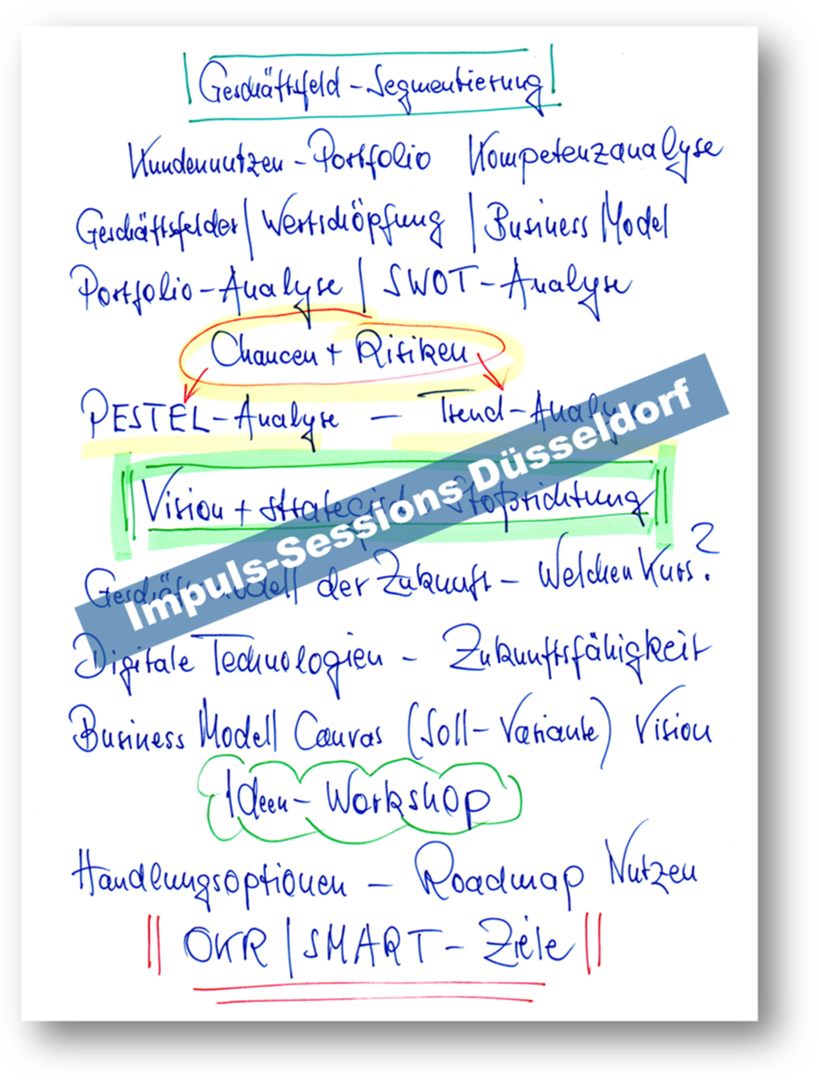 Geschäftsfeld-Segmentierung
Kundennutzen-Portfolio Kompetenzanalyse
Geschäftsfelder | Wertschöpfung | Business Model
Portfolio-Analyse | SWOT-Analyse
Chancen + Risiken
PESTEL-Analyse — Trend-Analyse
Vision + strategische Stoßrichtung
Impuls-Sessions Düsseldorf
Geschäftsmodell der Zukunft – Welchen Kurs?
Digitale Technologien – Zukunftsfähigkeit
Business Modell Canvas (Soll-Variante) Vision
Ideen-Workshop
Handlungsoptionen – Roadmap Nutzen
OKR | SMART-Ziele